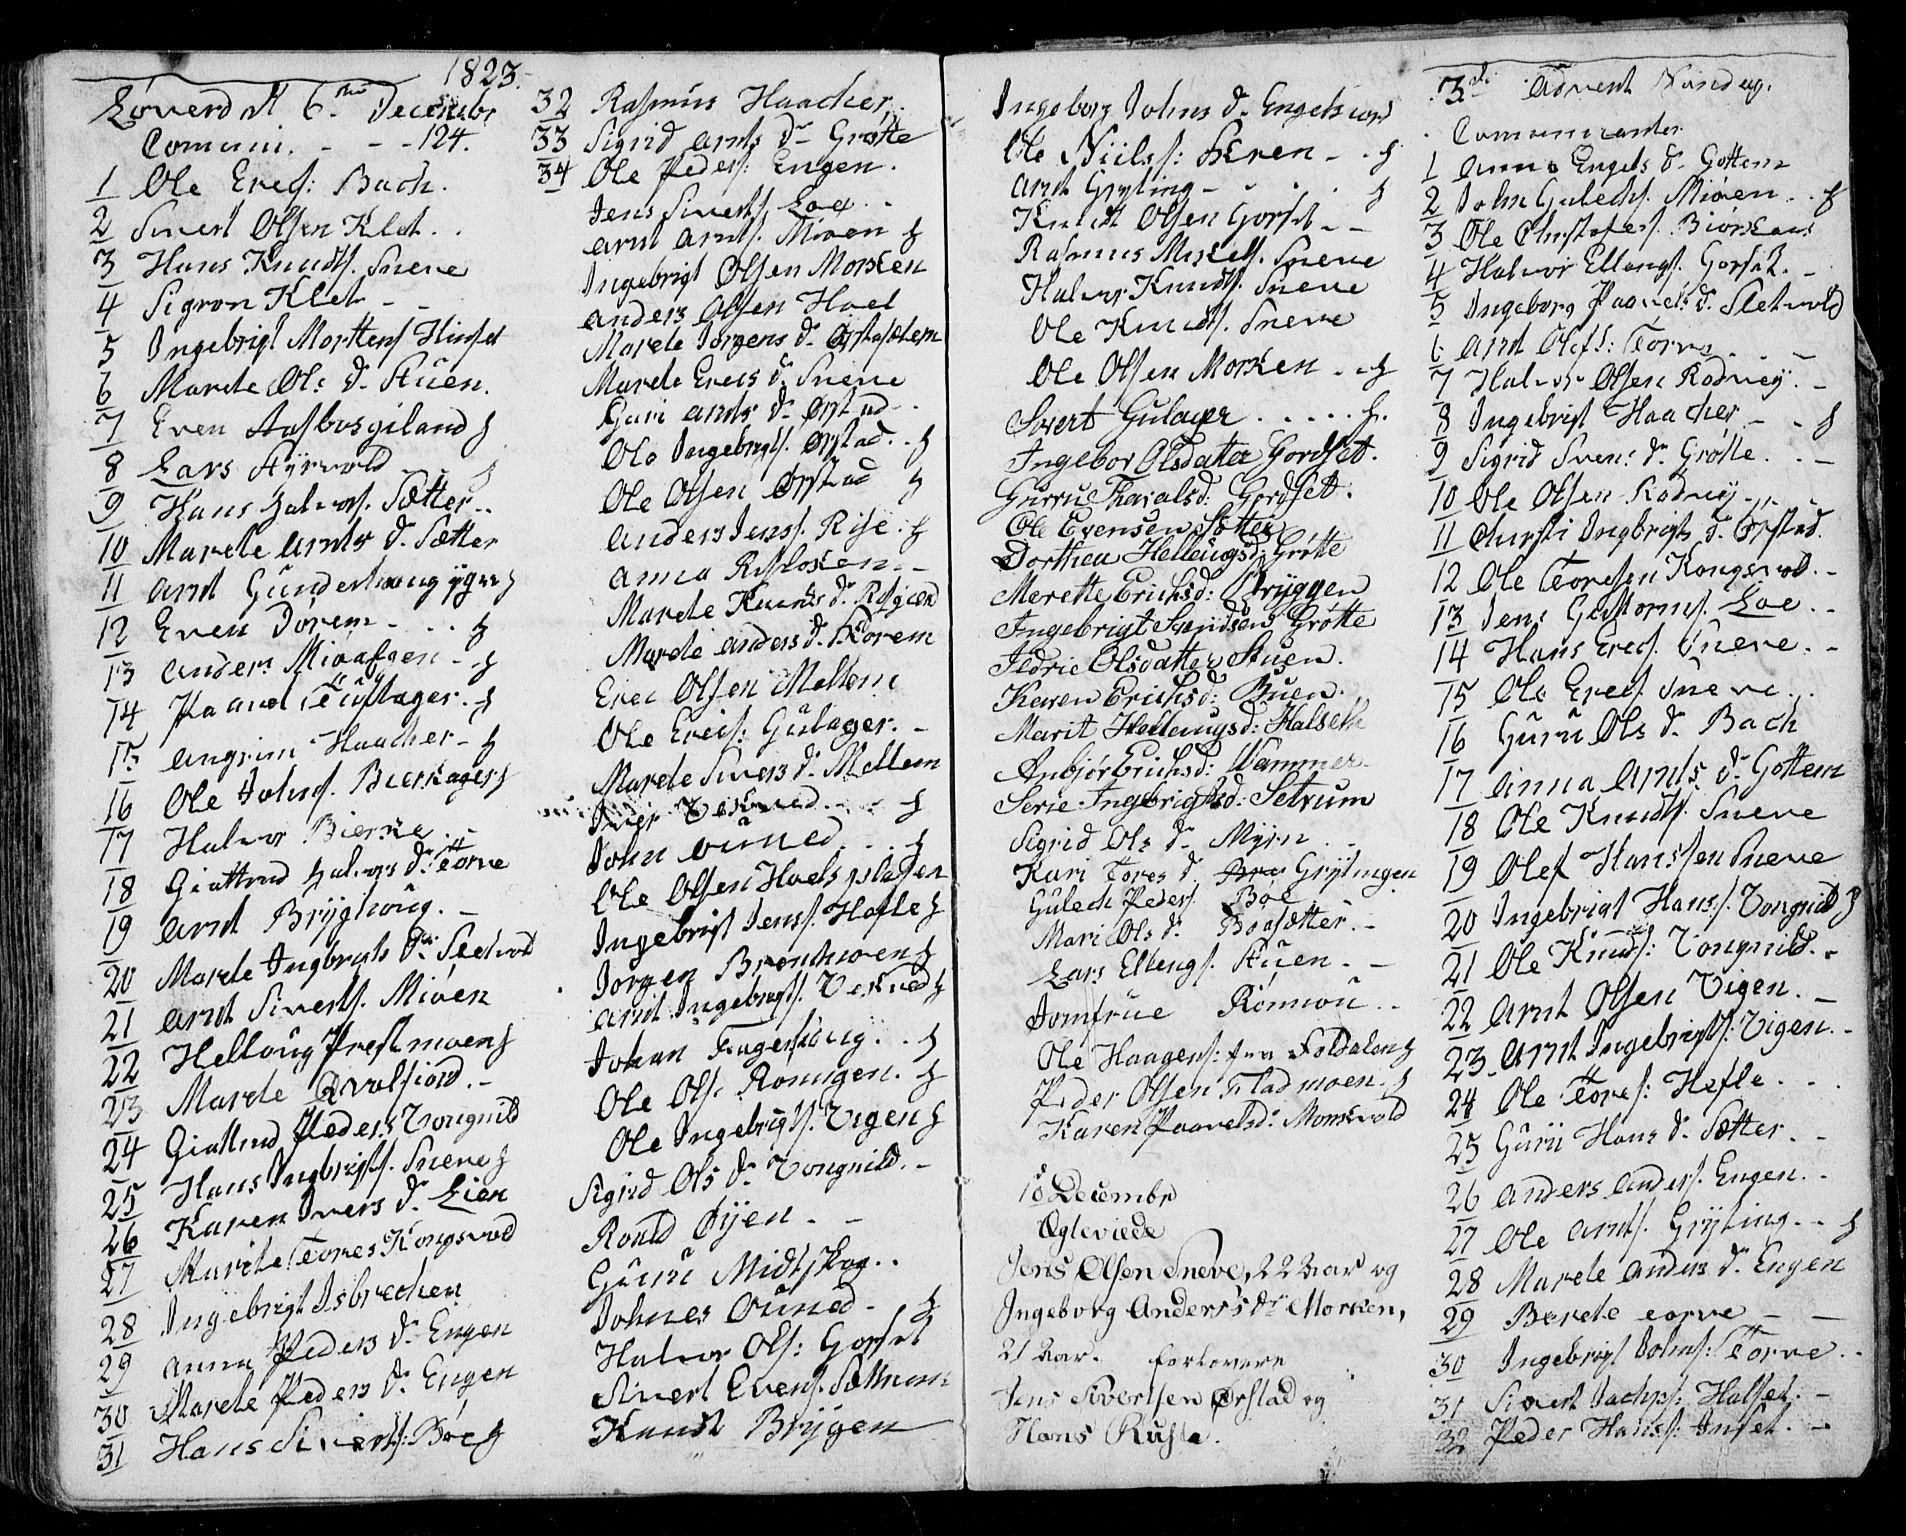 1823.
Løverd d 6te December
Comuni. - - - 124.
1 Ole Erecs: Bach.
2 Sivert Olsen Klet. .
3 Hans Knudts. Sneve
4 Sigron Klet - -
5 Ingebrigt Morttens Hinset
6 Marete Ols D. Stuen.
7 Even
8 Lars
9 Hans Halvors. Sætter. .
10 Marete Arnts D. Sætter
11 Arnt
12 Even Dorem - . . .
13 Anders
14 Paavel
15 Angrim Haacher -
16 Ole Johns. Bierkager
17 Halvor Bierke
18 Giattrud Halvors Dr Torve
19 Arnt Brÿghoug. -
20 Marete Ingbrigts Dr Sletvold
21 Arnt Siverts. Mioen
22 Helloug Prestmoen
23 Marete Qvalsiord. -
24 Giattrud Peders Vongnild
25 Hans Ingbrigts. Sneve
26 Karen Ivers D. Lien
27 Marete Tores Kongsvod
28 Ingebrigt Isbrechen
29 Anna Peders Dr Engen
30 Marete Peders D. Engen
31 Hans Siverts: Böe
32 Rasmus Haacher.
33 Sigrid Arnts Dr Grøtte
34 Ole Peders. Engen.
Jens Siverts Loe . .
Arnt Arnts. Mioen
Ingebrigt Olsen Morken
Anders Olsen Hoel
Marete Jørgens Dr
Marete Erecs D. Sneve
Guri Arnts Dr Ørstad - .
Ole Ingebrigts. Ørstad. .
Ole Olsen Ørstad
Anders Jens. Rise .
Anna
Marete Knuds D.
Marete Anders D. Dorem
Erec Olsen Mellem
Ole Erecs: Gulager. -
Marete Sivers D. Mellem
Iver Veknad . . .
John Ouned . . .
Ole Olsen
Ingebrigt Jens. Hefle
Jørgen
Arnt Ingebrigts. Veknad
Johan
Ole Ols. Romigen.
Ole Ingebrigts. Vigen
Sigrid Ols Dr Vongnild. -
Roald Øÿen - -
Guru Midtskog . .
Johnes Ouned -
Halvor Ols: Gorset
Sivert Evens.
Knudt Brÿgen
Ingeborg Johns D.
Ole Niels:
Arnt Gryting - - . .
Knudt Olsen Gorset - -
Rasmus Mikels. Sneve
Halvor Knudts. Sneve
Ole Knudts. Sneve
Ole Olsen Morken - -
Sivert Gulager . . . . .
Ingebor Olsdatter Gordset.
Gurru Tharalsd: Gordsett.
Ole Evensen Søtter
Dorthea Hellengsd: Grøtte
Merette Erichsd: Brÿggen
Ingebrigt Grøtte
Olsdatter Stuen.
Karen Erichsd: Buen.
Marit Hellengsd: Halseth
Anbjør Erichsd: Wammer
Serie Ingebrigtsd: Setrum
Sigrid Ols Dr Mÿrn . .
Kari Tores D. Grÿtingen
Gulech Peders Böe
Mari Ols Dr
Lars Ellengs. Stuen. - -
Jomfrue Rømou . .
Ole Haagens: fra Foldalen
Peder Olsen Fladmoen.
Karen Paavelsd: Monsvold
10 Decembr
Ægteviede
Jens Olsen Sneve, 22 aar og
Ingeborg Anders's Dr Morken,
21 aar. Forlovere
Jens Sivertsen Ørstad og
Hans Ruste.
3di Advent Søndag.
Comunicanter
1 Anne Engels D. Gottem
2 John Gulechs. Mioen . .
3 Ole Christofers.
4 Halvor Ellengs. Gorset. -
5 Ingeborg Paavels D. Sletvold
6 Arnt Olefs: Torve . . -
7 Halvor Olsen Rodvey. -
8 Ingebrigt Haacher - -
9 Sigrid Svens Dr Grøtte. . -
10 Ole Olsen Rodvey . . .
11 Chirsti Ingbrigts D. Ørstad.
12 Ole Toresen Kongsvod. -
13 Jens Guttorms. Loe . .
14 Hans Erecs. Sneve. -
15 Ole Erecs. Sneve . .
16 Guru Ols Dr Bach
17 Anna Arnts Dr Gottem
18 Ole Knudts. Sneve
19 Olef Hanssen Sneve
20 Ingebrigt Hans. Vongnild
21 Ole Knuds: Vongnild. -
22 Arnt Olsen Vigen. -
23 Arnt Ingebrigts. Vigen. -
24 Ole Tores: Hefle. . .
25 Guru Hans Dr Sætter. -
26 Anders Anders. Engen. .
27 Ole Arnts. Grÿting. - -
28 Marete Anders Dr Engen
29 Berete Torve - -
30 Ingebrigt Johns: Torve. .
31 Sivert Halset. -
32 Peder Hans: Inset. -